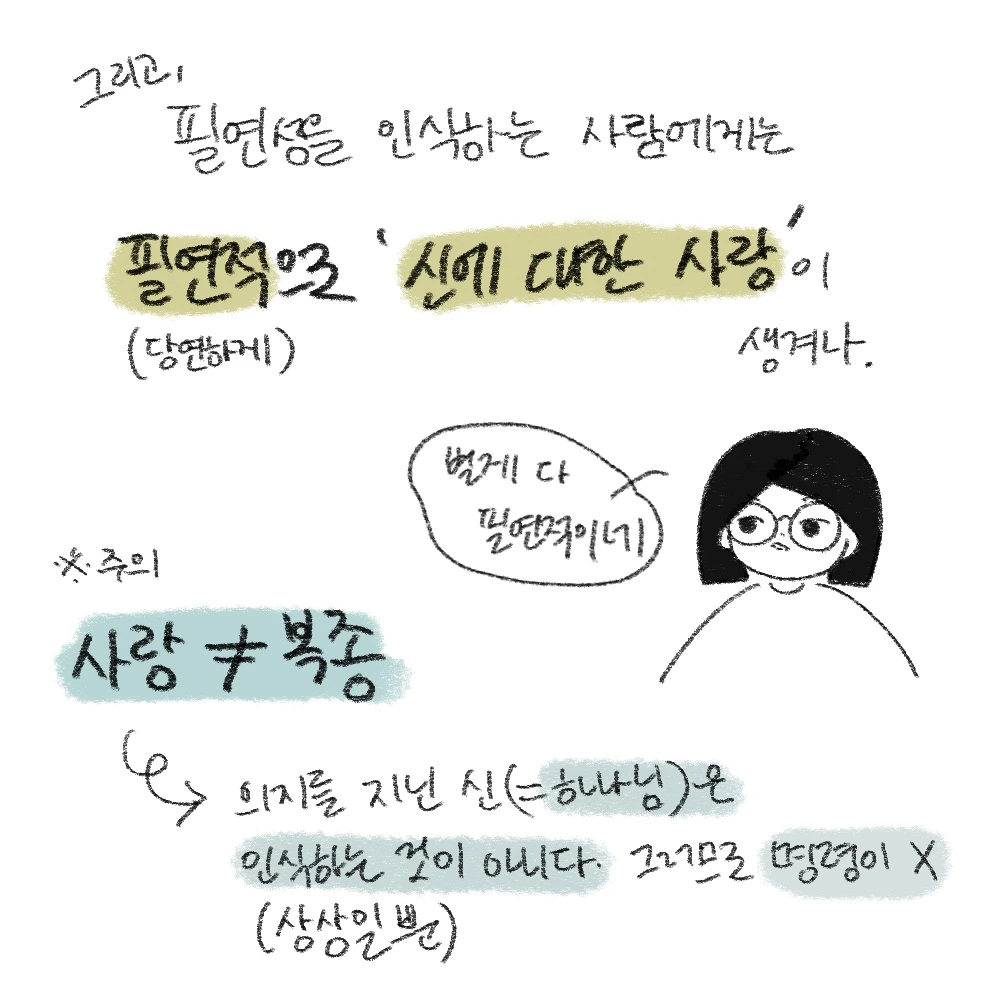 그리고,
필연성을 인식하는 사람에게는
필연적으로 '신에 대한 사랑'이
(당연하게)
생겨나.
별게 다
필연적이네
※주의
사랑 ≠ 복종
의지를 지닌 신(=하나님)은
인식하는 것이 아니다. 그러므로 명령이 X
(상상일 뿐)